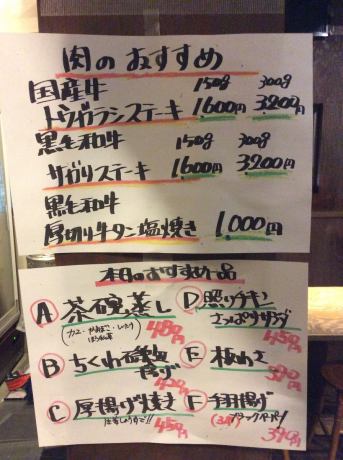 肉のおすすめ
国産牛 150g 300g
トウガラシステーキ 1,600円 3,200円
黒毛和牛 150g 300g
サガリステーキ 1,600円 3,200円
黒毛和牛
厚切り牛タン塩焼き 1,000円
本日のおすすめ一品
A 茶碗蒸し
480円
B ちくわ磯辺
揚げ
420円
C 厚揚げ焼き
450円
D 照りチキン
さっぱりサラダ
450円
E 板わさ
F 手羽揚げ
(3本) ブラックペッパー
390円